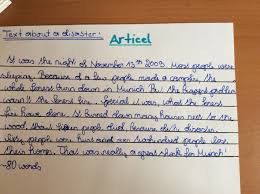 Text about a disaster:
Articel
It was the night of November 15th 2003. Most people were
sleeping. Because of a few people made a campfire, the
whole forest burn down in Munich. The biggest problem
wasn't the forest fire. Special it was, what the forest
fire have done. It burned down many houses next to the
wood, about fifteen people died because of the disaster.
people were hurt and even hundred people lost
their homes. That was really a great shock for Munich!
~80 words